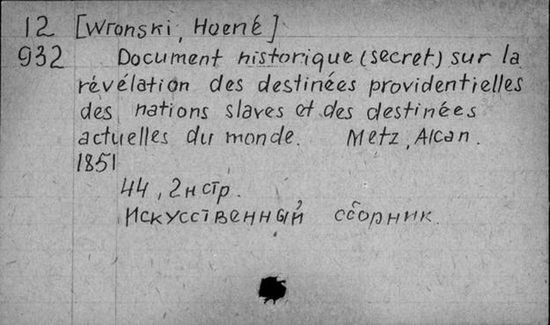 12 [Wronski, Hoené]
932 Document historique (secret) sur la
révélation des destinées providentielles
des nations slaves et des destinées
actuelles du monde. Metz, Alcan.
1851
44, 2н стр.
Искусственный сборник.